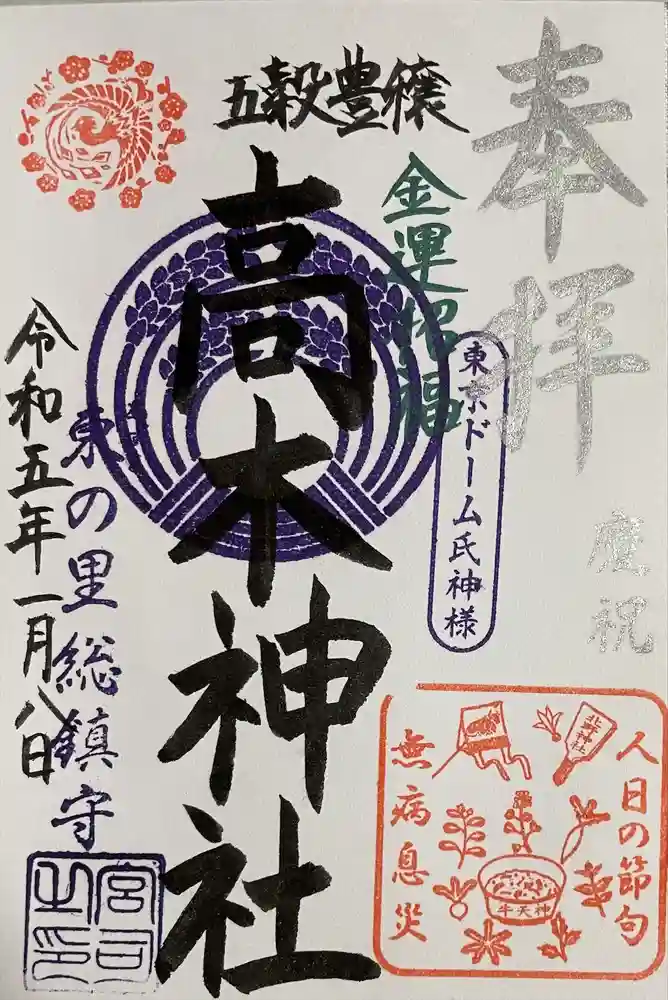 奉拝
慶祝
五穀豊穣
金運招福
東京ドーム氏神様
高木神社
東の里総鎮守
令和五年一月八日
宮司之印
人日の節句
北野神社
牛天神
無病息災